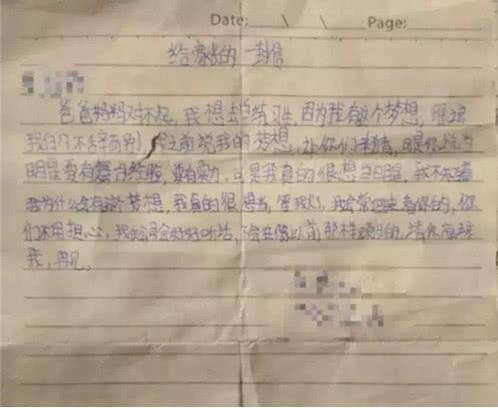 Date: \ \ Page:
给家长的一封信
爸爸妈妈对不起，我想去当练习生，因为我有这个梦想，原谅
我们不辞而别，之前说我的梦想，让你们 ，可是你说当
明星要有舞台经验，要有实力，可是我真的很想当明星，我不知道
我为什么会有这个梦想，我真的很想当，等我火了，我会常回来看你的，你
们不用担心，我 会好好听话，不会再像以前那样 的，请你原谅
我，再见。